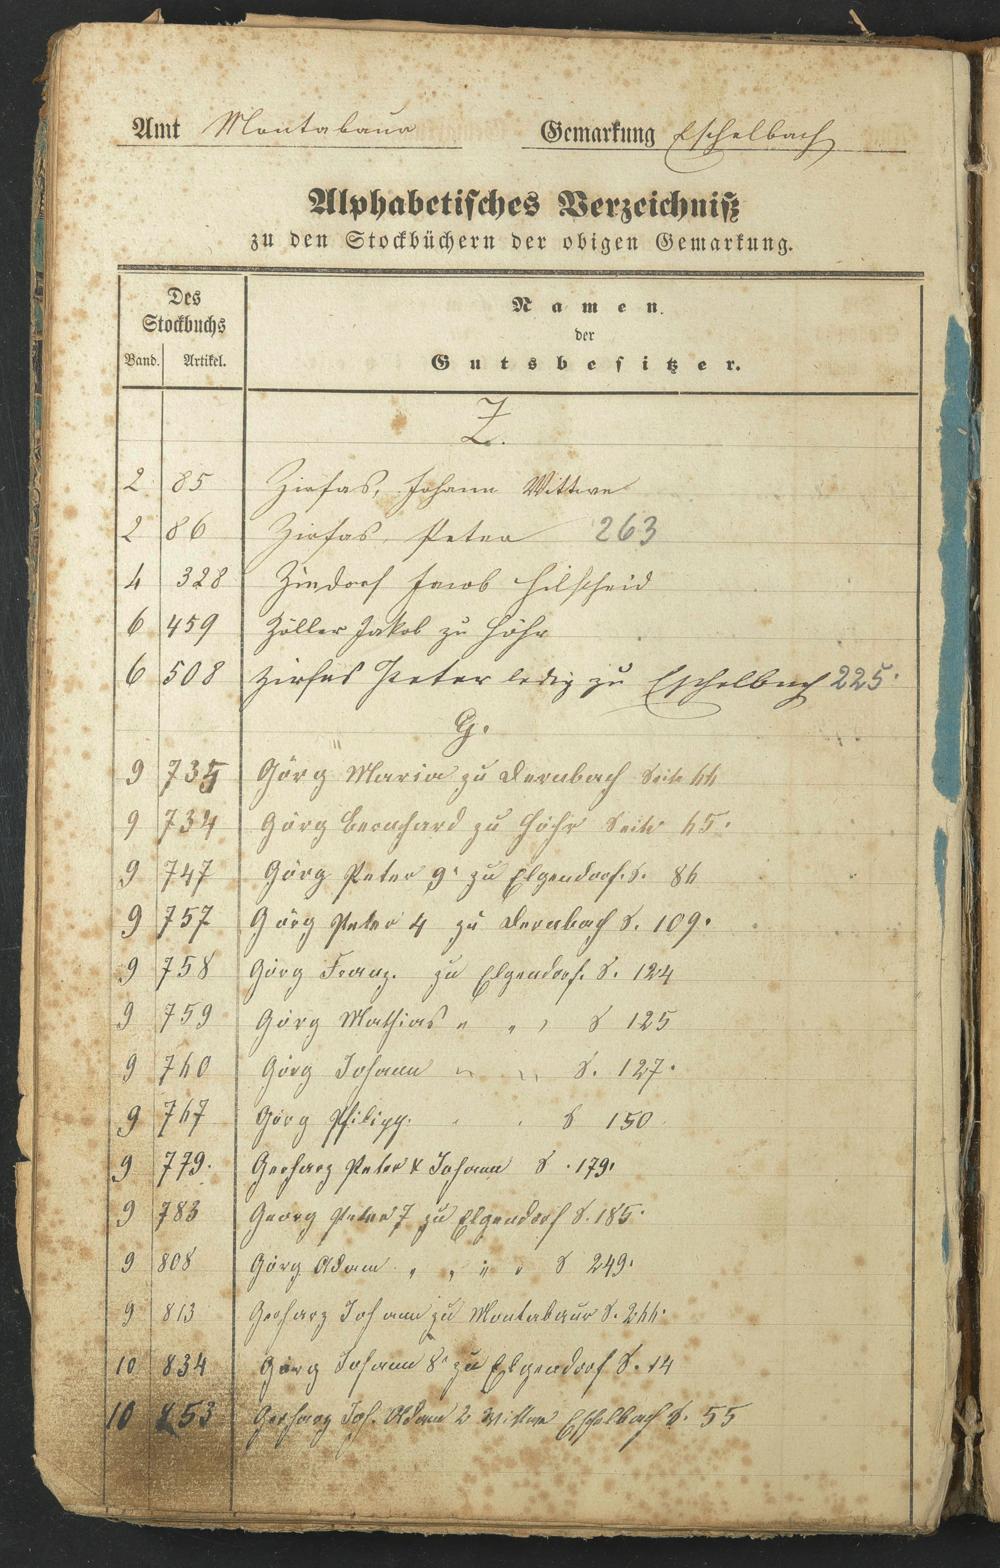 Amt Montabaur Gemarkung Eschelbach
Alphabetisches Verzeichniß
zu den Stockbüchern der obigen Gemarkung.
Des Stockbuchs
Band. Artikel.
Namen
der
Gutsbesitzer.
Z.
2 85 Zirfas, Johann Wittwe
2 86 Zirfas, Peter 263
4 328 Zindorf Jacob Hilscheid
6 459 Zöller Jakob zu Höhr
6 508 Zirfas Peter ledig zu Eschelbach 225.
G.
9 735 Görg Maria zu Dernbach Seite 44
9 734 Görg Bernhard zu Höhr Seite 65.
9 747 Görg Peter 9r zu Elgendorf. S. 86
9 757 Görg Peter 4 zu Dernbach S. 109.
9 758 Görg Franz. zu Elgendorf. S. 124
9 759 Görg Mathias " " " S 125
9 760 Görg Johann " " S. 127.
9 767 Görg Philipp. " " S 150
9 779. Gerharz Peter & Johann S. 179.
9 783 Georg Peter 7 zu Elgendorf S. 185.
9 808 Görg Adam " " " " S 249.
9 813 Gerharz Johann zu Montabaur S. 266.
10 834 Görg Johann 8r zu Elgendorf S. 14
10 853 Gerharz Joh. Adam 2 Wittwe Eschelbach S. 55